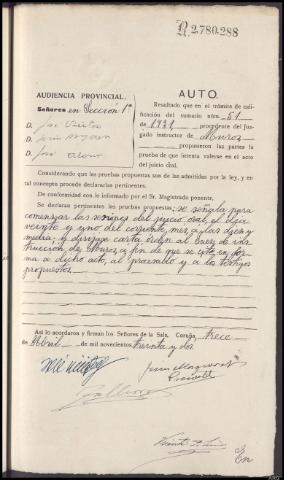 R.2.780.288
AUDIENCIA PROVINCIAL.
Señores en Sección 1ª
D. José
D. Jesús
D. José
AUTO.
Resultado que en el trámite de cali-
ficación del sumario núm. 51
de 1931 procedente del Juz-
gado instructor de Muros
propusieron las partes la
prueba de que intenta valerse en el acto
del juicio oral.
Considerando que las pruebas propuestas son de las admitidas por la ley, y en
tal concepto procede declararlas pertinentes.
De conformidad con lo informado por el Sr. Magistrado ponente,
Se declaran pertinentes las pruebas propuestas; se señala para
comenzar las sesiones del juicio oral, el día
veinte y uno del corriente mes, a las diez y
media; y diríjase carta orden al Juez de ins-
trucción de Muros, a fin de que se cite en for-
ma a dicho acto, al procesado y a los testigos
propuestos.
Así lo acordaron y firman los Señores de la Sala. Coruña, trece
de Abril de mil novecientos treinta y dos